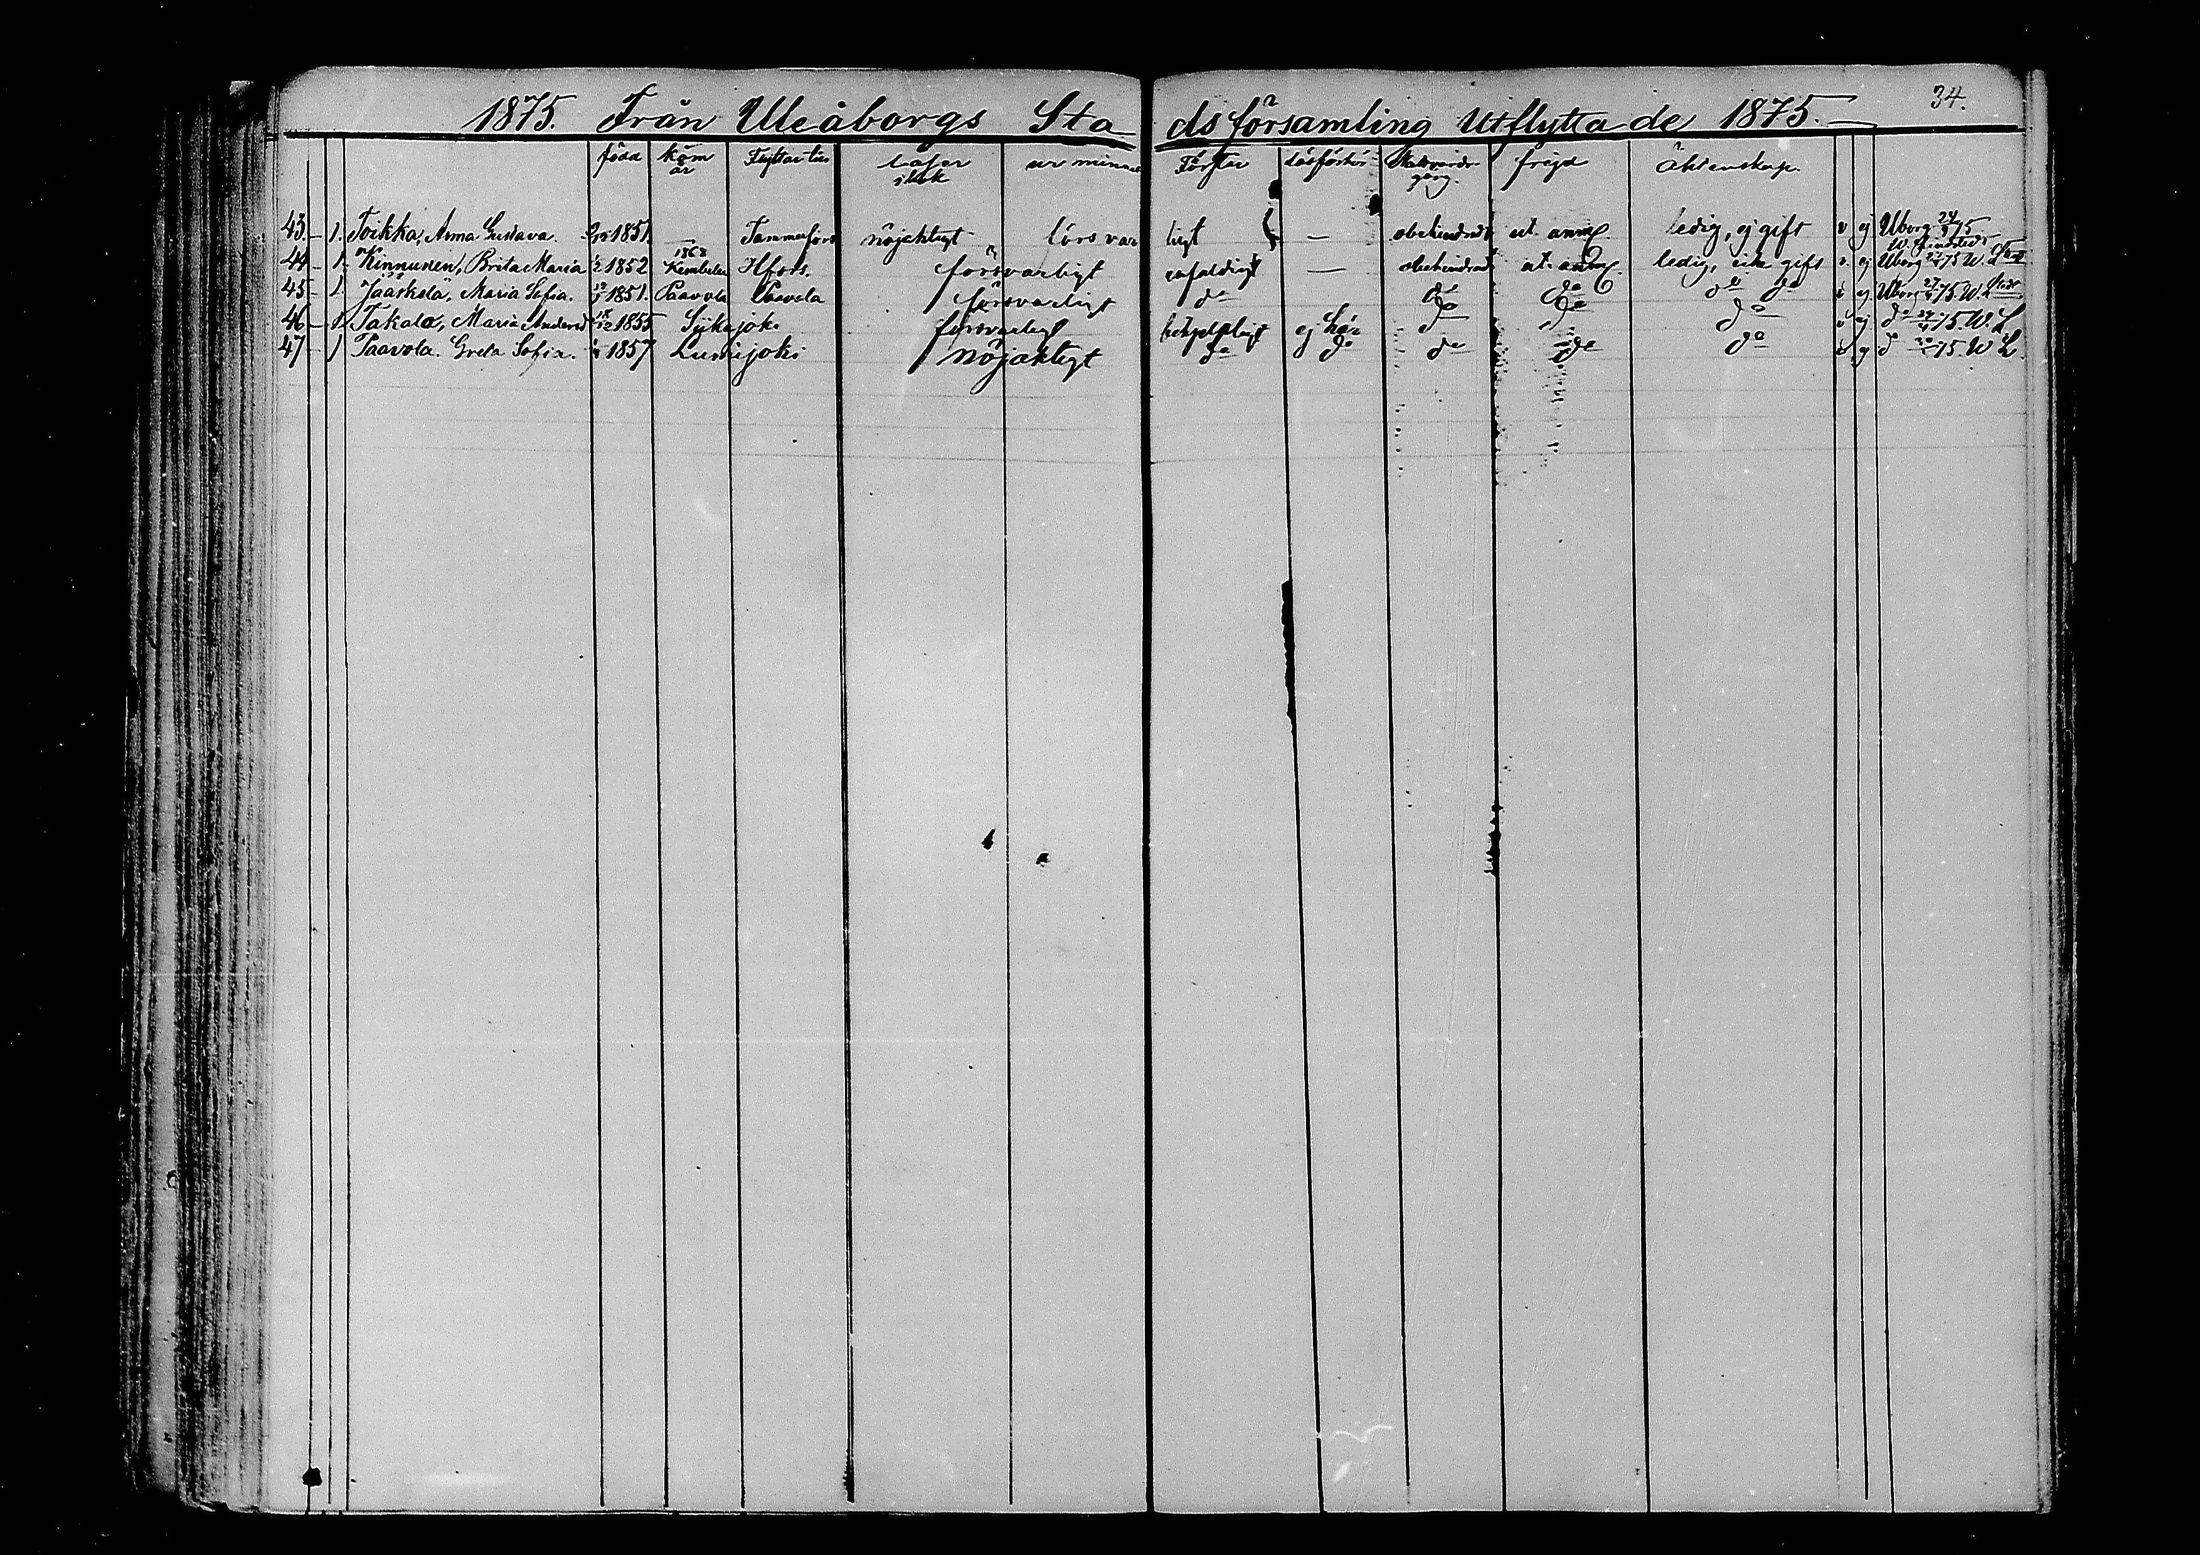 34.
1875. Från Uleåborgs Stadsförsamling Utflyttade 1875.
född kom år Flyttar till Läser i bok ur minnet Förstår Läsförhör Nattvards gång. frejd Äktenskap.
43 – 1. Toikka, Anna Gustava. 1851. — Tammerfors nöjaktigt försvarligt — obehindrad ledig, ej gift v ej Uborg 75
44 – 1. Kinnunen, Brita Maria 1852 1868 Kembele Hfors. försvarligt enfaldigt — obehindrad ledig, icke gift v. ej Uborg 75 W.
45 – 1. Jääskelä, Maria Sofia. 1851. Paavola Paavola försvarligt do do do do do ej Uborg 75. W. L
46 – 1. Takalo, Maria 1855 Sijkajoki försvarligt ej här do do do ej do 75. W. L
47 – 1 Paavola. Greta Sofia. 1857 Lumijoki nöjaktigt do do do do do do 75. W L.